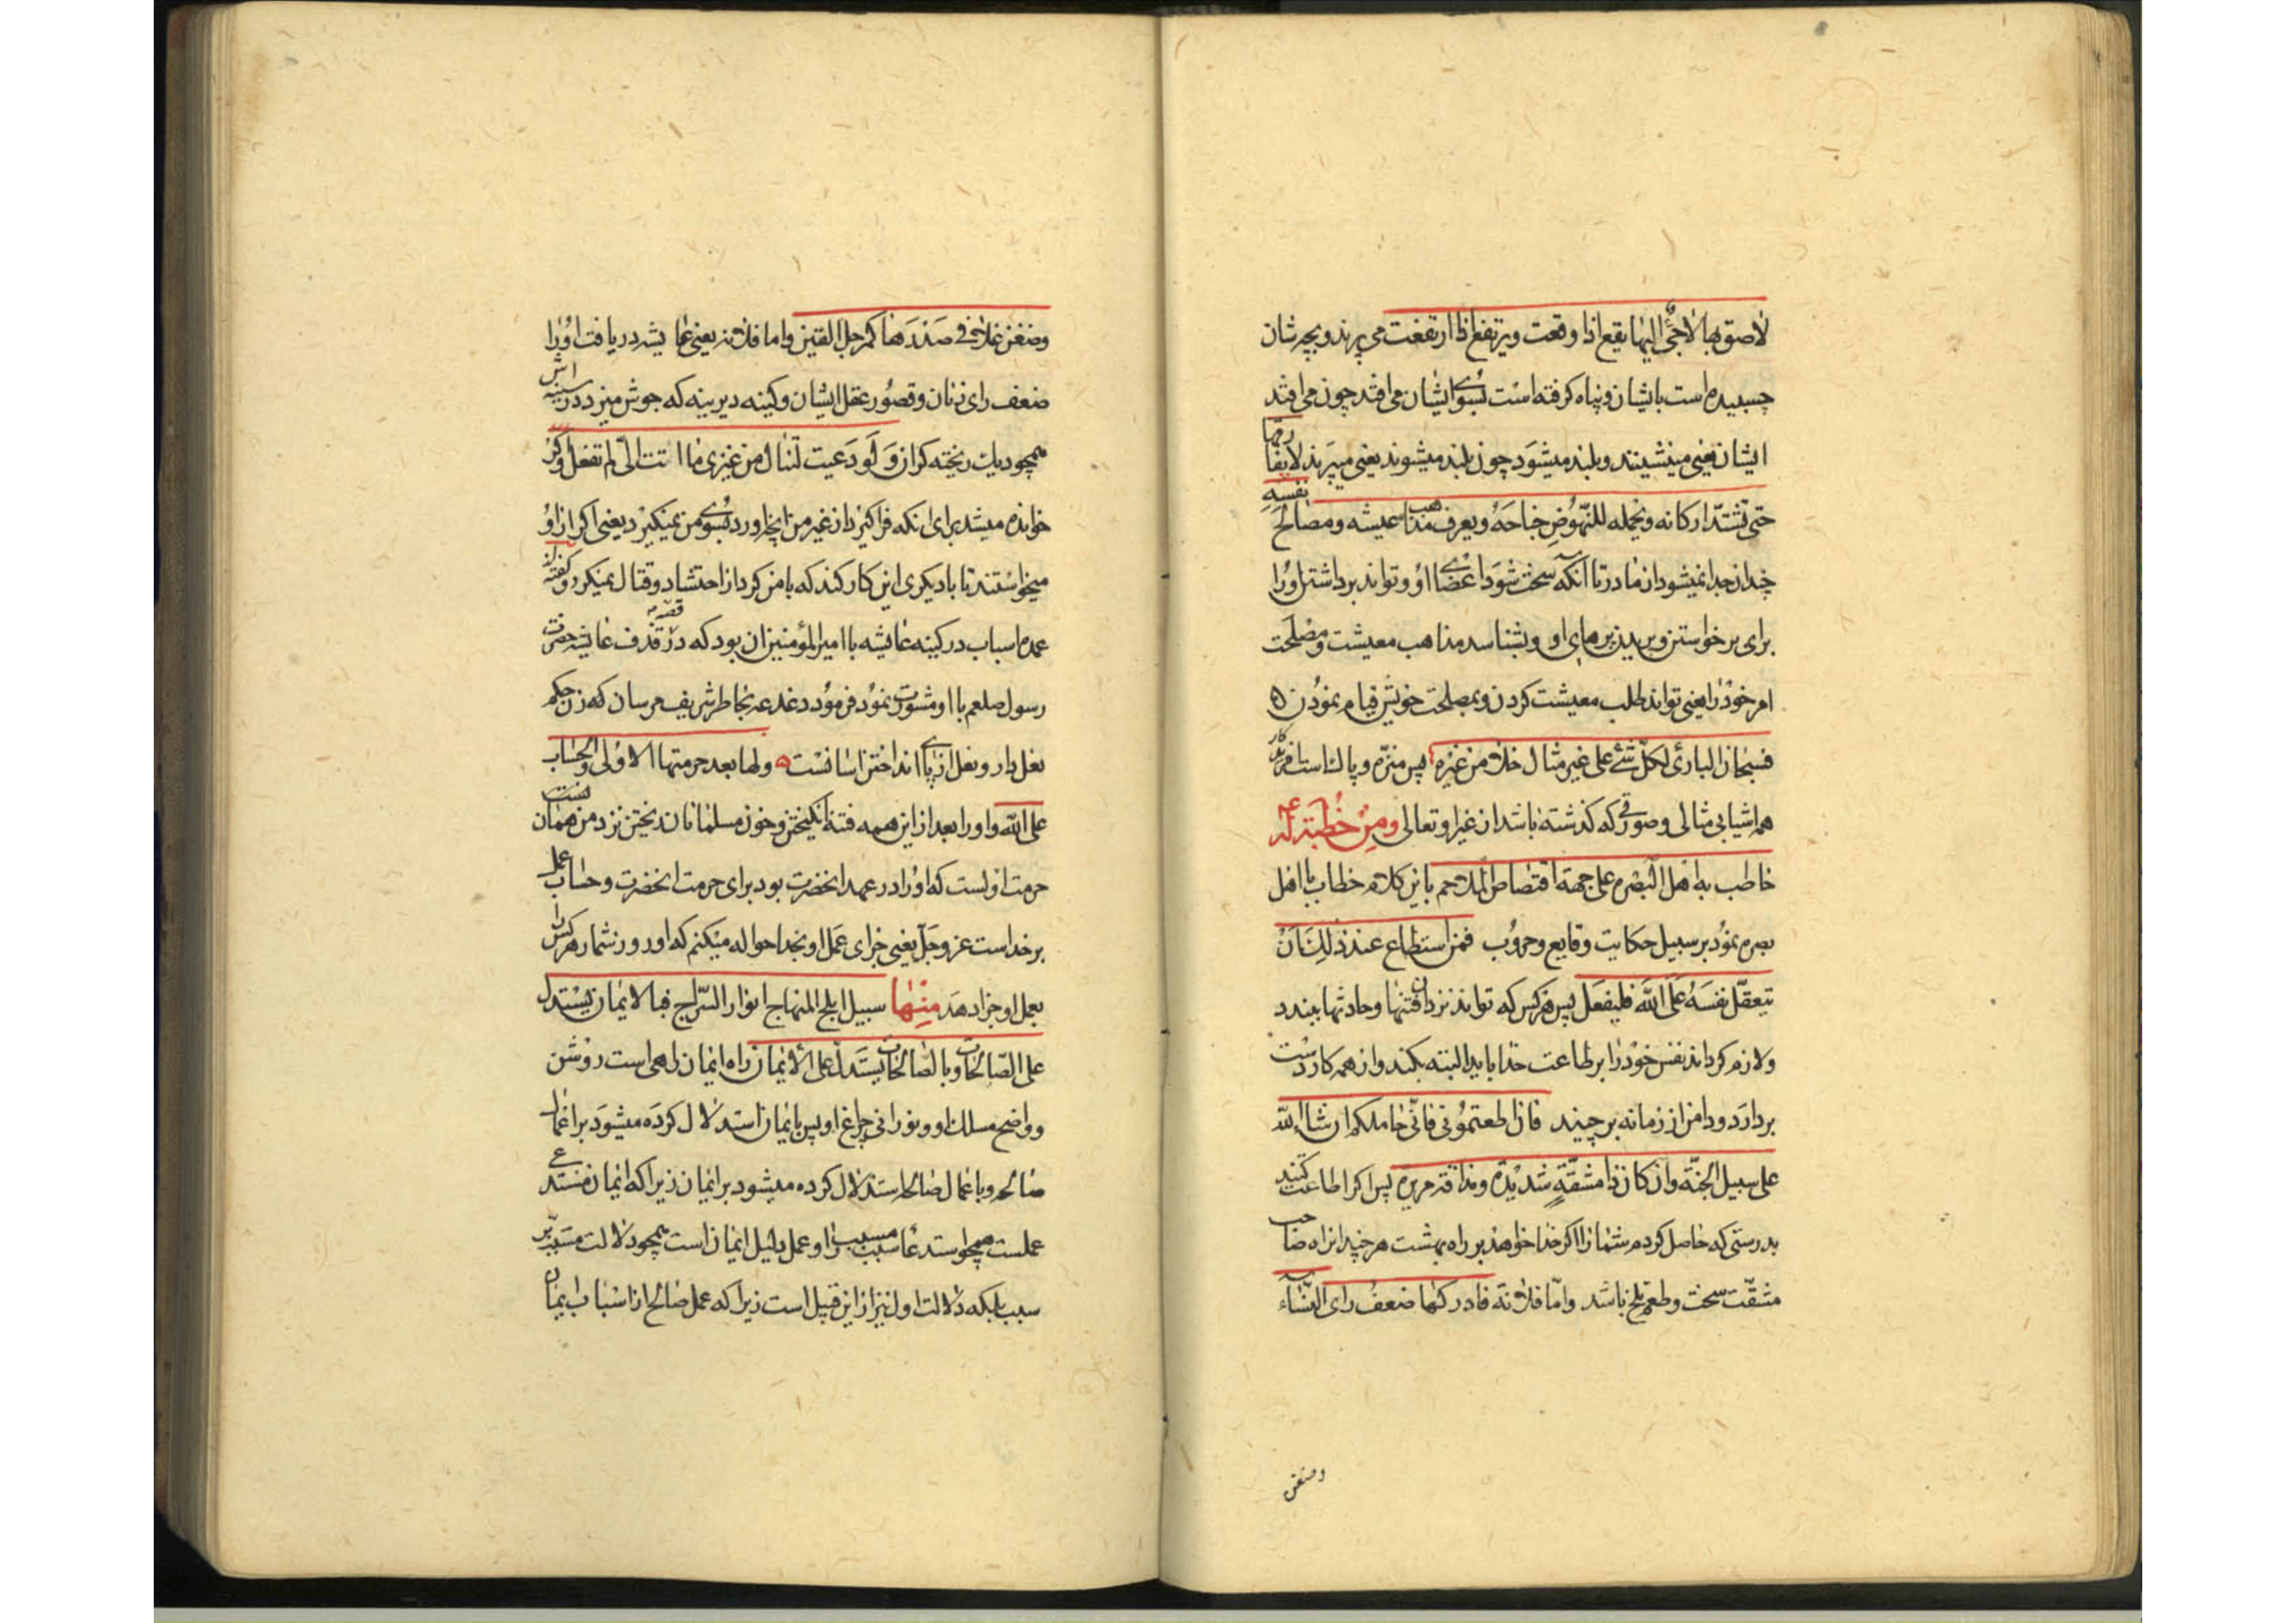 لاصق بها لاجئ الیها یقع اذا وقعت ویرتفع اذا ارتفعت می پرند و بچه شان
چسبیده است بایشان و پناه کرفته است بسوی ایشان می افتد چون می افتد
ایشان یعنی مینشینند و بلند میشود چون بلند میشوند یعنی میپرند لا یفارقها
حتی تشتد ارکانه ویحمله للنهوض جناحه ویعرف مذاهب عیشه ومصالح نفسه
چندان جدا نمیشود از مادر تا آنکه سخت شود اعضای او و تواند برداشتن او را
برای برخواستن و پریدن پرهای او و بشناسد مذاهب معیشت و مصلحت
امر خود را یعنی تواند طلب معیشت کردن و بمصلحت خویش قیام نمودن
فسبحان البارئ لکل شئ علی غیر مثال خلا من غیره پس منزه و پاکست آفریدکار
همه اشیا بی مثالی و صورتی که کذشته باشد از غیر او تعالی ومن خطبة له ع
خاطب به اهل البصره علی جهة اقتصاص الملاحم باین کلام خطاب با اهل
بصره نمود بر سبیل حکایت وقایع و حروب فمن استطاع عند ذلک ان
یتعقل نفسه علی الله فلیفعل پس هر کس که تواند نزد ان فتنها و حادثها ببندد
و لازم کرداند نفس خود را بر طاعت خدا باید البته بکند و از همه کار دست
بردارد و دامن از زمانه برچیند فان اطعتمونی فانی حاملکم ان شاء الله
علی سبیل الجنة وان کان ذا مشقة شدیدة ومذاقة مریرة پس اکر اطاعت کنید
بدرستی که حاصل کردم شما را اکر خدا خواهد بر راه بهشت هر چند ان راه صاحب
مشقت سخت و طعم تلخ باشد واما فلانة فادرکها ضعف رای النساء
وضغن
وضغن غلا فی صدرها کمرجل القین واما فلانه یعنی عایشه دریافت او را
ضعف رای زنان و قصور عقل ایشان و کینه دیرینه که جوش میزد در سینه اش
همچو دیک ریخته کران ولو دعیت لتنال من غیری ما اتت الی لم تفعل و اکر
خوانده میشد برای انکه فراکیرد از غیر من انچه اورد بسوی من نمیکیرد یعنی اکر از او
میخواستند تا با دیکری این کار کند که با من کرد از احتشاد و قتال نمیکرد و کفته‌اند
عمده اسباب در کینه عایشه با امیر المؤمنین ان بود که در قصه قذف عایشه حضرت
رسول صلعم با او مشورت نمود فرمود دغدغه بخاطر شریف مرسان که زن حکم
نعل دارد و نعل از پای انداختن اسانست ولها بعد حرمتها الاولی والحساب
علی الله و او را بعد از این همه فتنه انکیختن و خون مسلمانان ریختن نزد من همان
حرمت اولست که او را در عهد انحضرت بود برای حرمت انحضرت و حساب عمل
بر خداست عز وجل یعنی جزای عمل او بخدا حواله میکنم که او در روز شمار هر کس را
بعمل او جزا دهد منها سبیل ابلج المنهاج انوار السراج فبالایمان یستدل
علی الصالحات وبالصالحات یستدل علی الایمان راه ایمان راهی است روشن
و واضح مسلک او و نورانی چراغ او پس بایمان استدلال کرده میشود بر اعمال
صالحه و باعمال صالحه استدلال کرده میشود بر ایمان زیرا که ایمان
عملست همچو و عمل دلیل ایمان است همچو دلالت مسبب بر
سبب بلکه دلالت اول نیز از این قبیل است زیرا که عمل صالح از اسباب ایمان